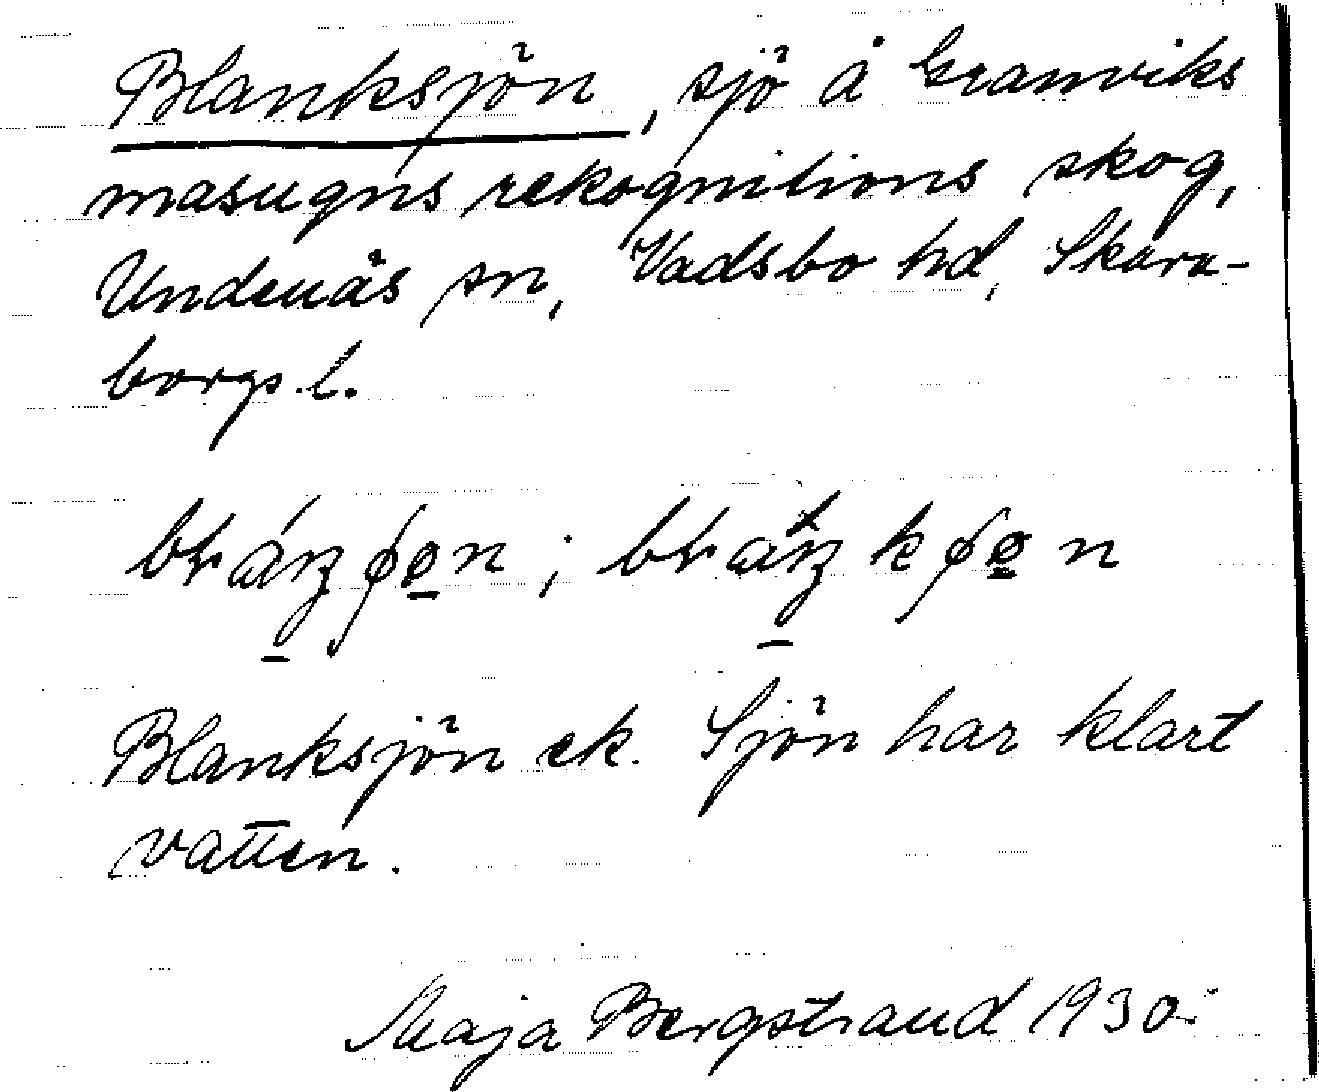 Blanksjön, sjö å Granviks
masugns rekognitions skog,
Undenäs sn, Vadsbo hd, Skara-
borgs l.
Blanksjön ek. Sjön har klart
vatten.
Maja Bergstrand 1930.